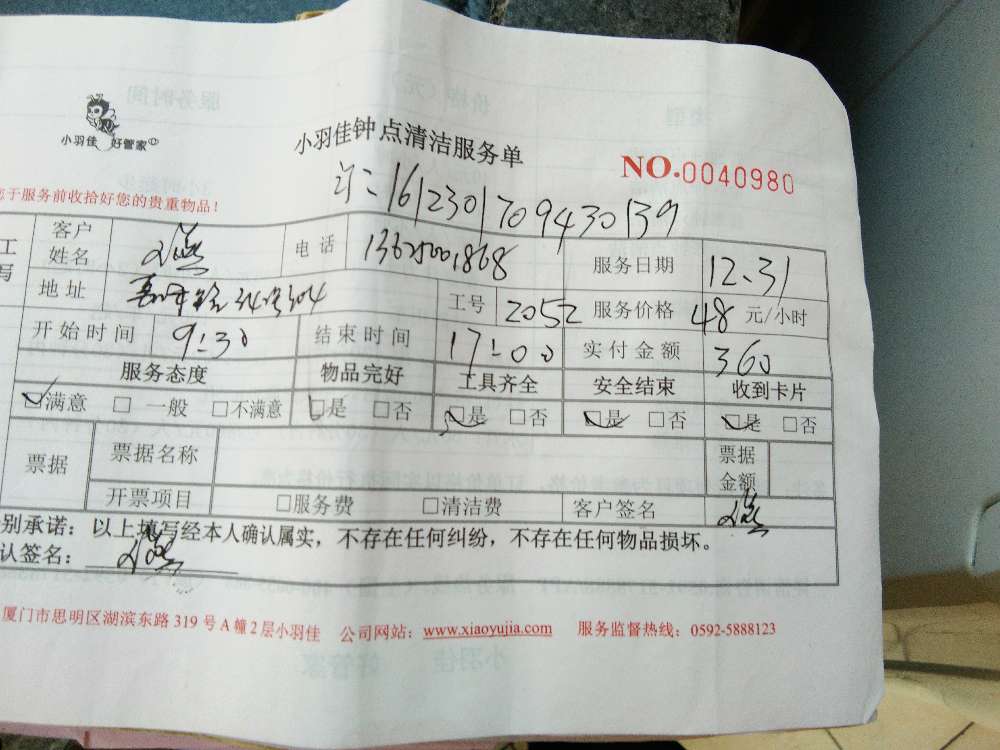 小羽佳 好管家
小羽佳钟点清洁服务单
NO.0040980
您于服务前收拾好您的贵重物品！
161230170943039
客户姓名 电话 服务日期 12.31
地址 工号 2052 服务价格 48 元/小时
开始时间 9:30 结束时间 17:00 实付金额 360
服务态度 物品完好 工具齐全 安全结束 收到卡片
☑满意 □一般 □不满意 ☑是 □否 ☑是 □否 ☑是 □否 ☑是 □否
票据 票据名称 票据金额
开票项目 □服务费 □清洁费 客户签名
别承诺：以上填写经本人确认属实，不存在任何纠纷，不存在任何物品损坏。
认签名：
厦门市思明区湖滨东路319号A幢2层小羽佳 公司网站：www.xiaoyujia.com 服务监督热线：0592-5888123